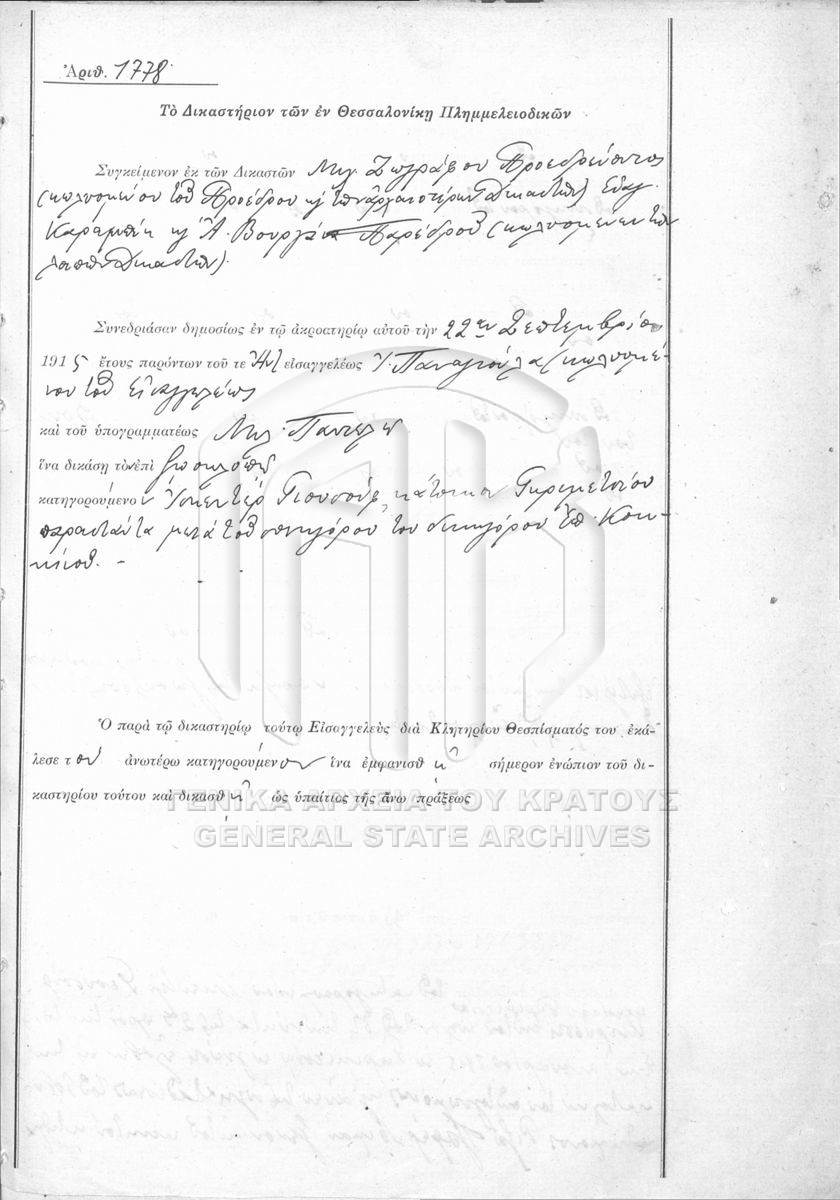 Ἀριθ. 1778
Τὸ Δικαστήριον τῶν ἐν Θεσσαλονίκῃ Πλημμελειοδικῶν
Συγκείμενον ἐκ τῶν Δικαστῶν Μιχ. Ζωγράφου Προεδρεύοντος
(κωλυομένου τοῦ Προέδρου κ τῶν ἀρχαιοτέρων Δικαστῶν) Εὐαγ.
Καραμπέτη κ Ἀ. Βουργα Παρέδρου (κωλυομένων τῶν
λοιπῶν Δικαστῶν).
Συνεδριάσαν δημοσίως ἐν τῷ ἀκροατηρίῳ αὐτοῦ τὴν 22αν Σεπτεμβρίου
1915 ἔτους παρόντων τοῦ τε Ἀντ εἰσαγγελέως Παναγιούλα (κωλυομέ-
νου τοῦ εἰσαγγελέως
καὶ τοῦ ὑπογραμματέως Μιλ. Παντελῆ
ἵνα δικάσῃ τὸν ἐπὶ ζωοκλοπῇ
κατηγορούμενον Ἰσκεντὲρ Γιουσούφ, κάτοικον
παραστάντα μετὰ τοῦ συνηγόρου του δικηγόρου Κοκ-
κίνου. -
Ὁ παρὰ τῷ δικαστηρίῳ τούτῳ Εἰσαγγελεὺς διὰ Κλητηρίου Θεσπίσματός του ἐκά-
λεσε τὸν ἀνωτέρω κατηγορούμενον ἵνα ἐμφανισθῇ σήμερον ἐνώπιον τοῦ δι-
καστηρίου τούτου καὶ δικασθῇ ὡς ὑπαίτιος τῆς ἄνω πράξεως
ΓΕΝΙΚΑ ΑΡΧΕΙΑ ΤΟΥ ΚΡΑΤΟΥΣ
GENERAL STATE ARCHIVES